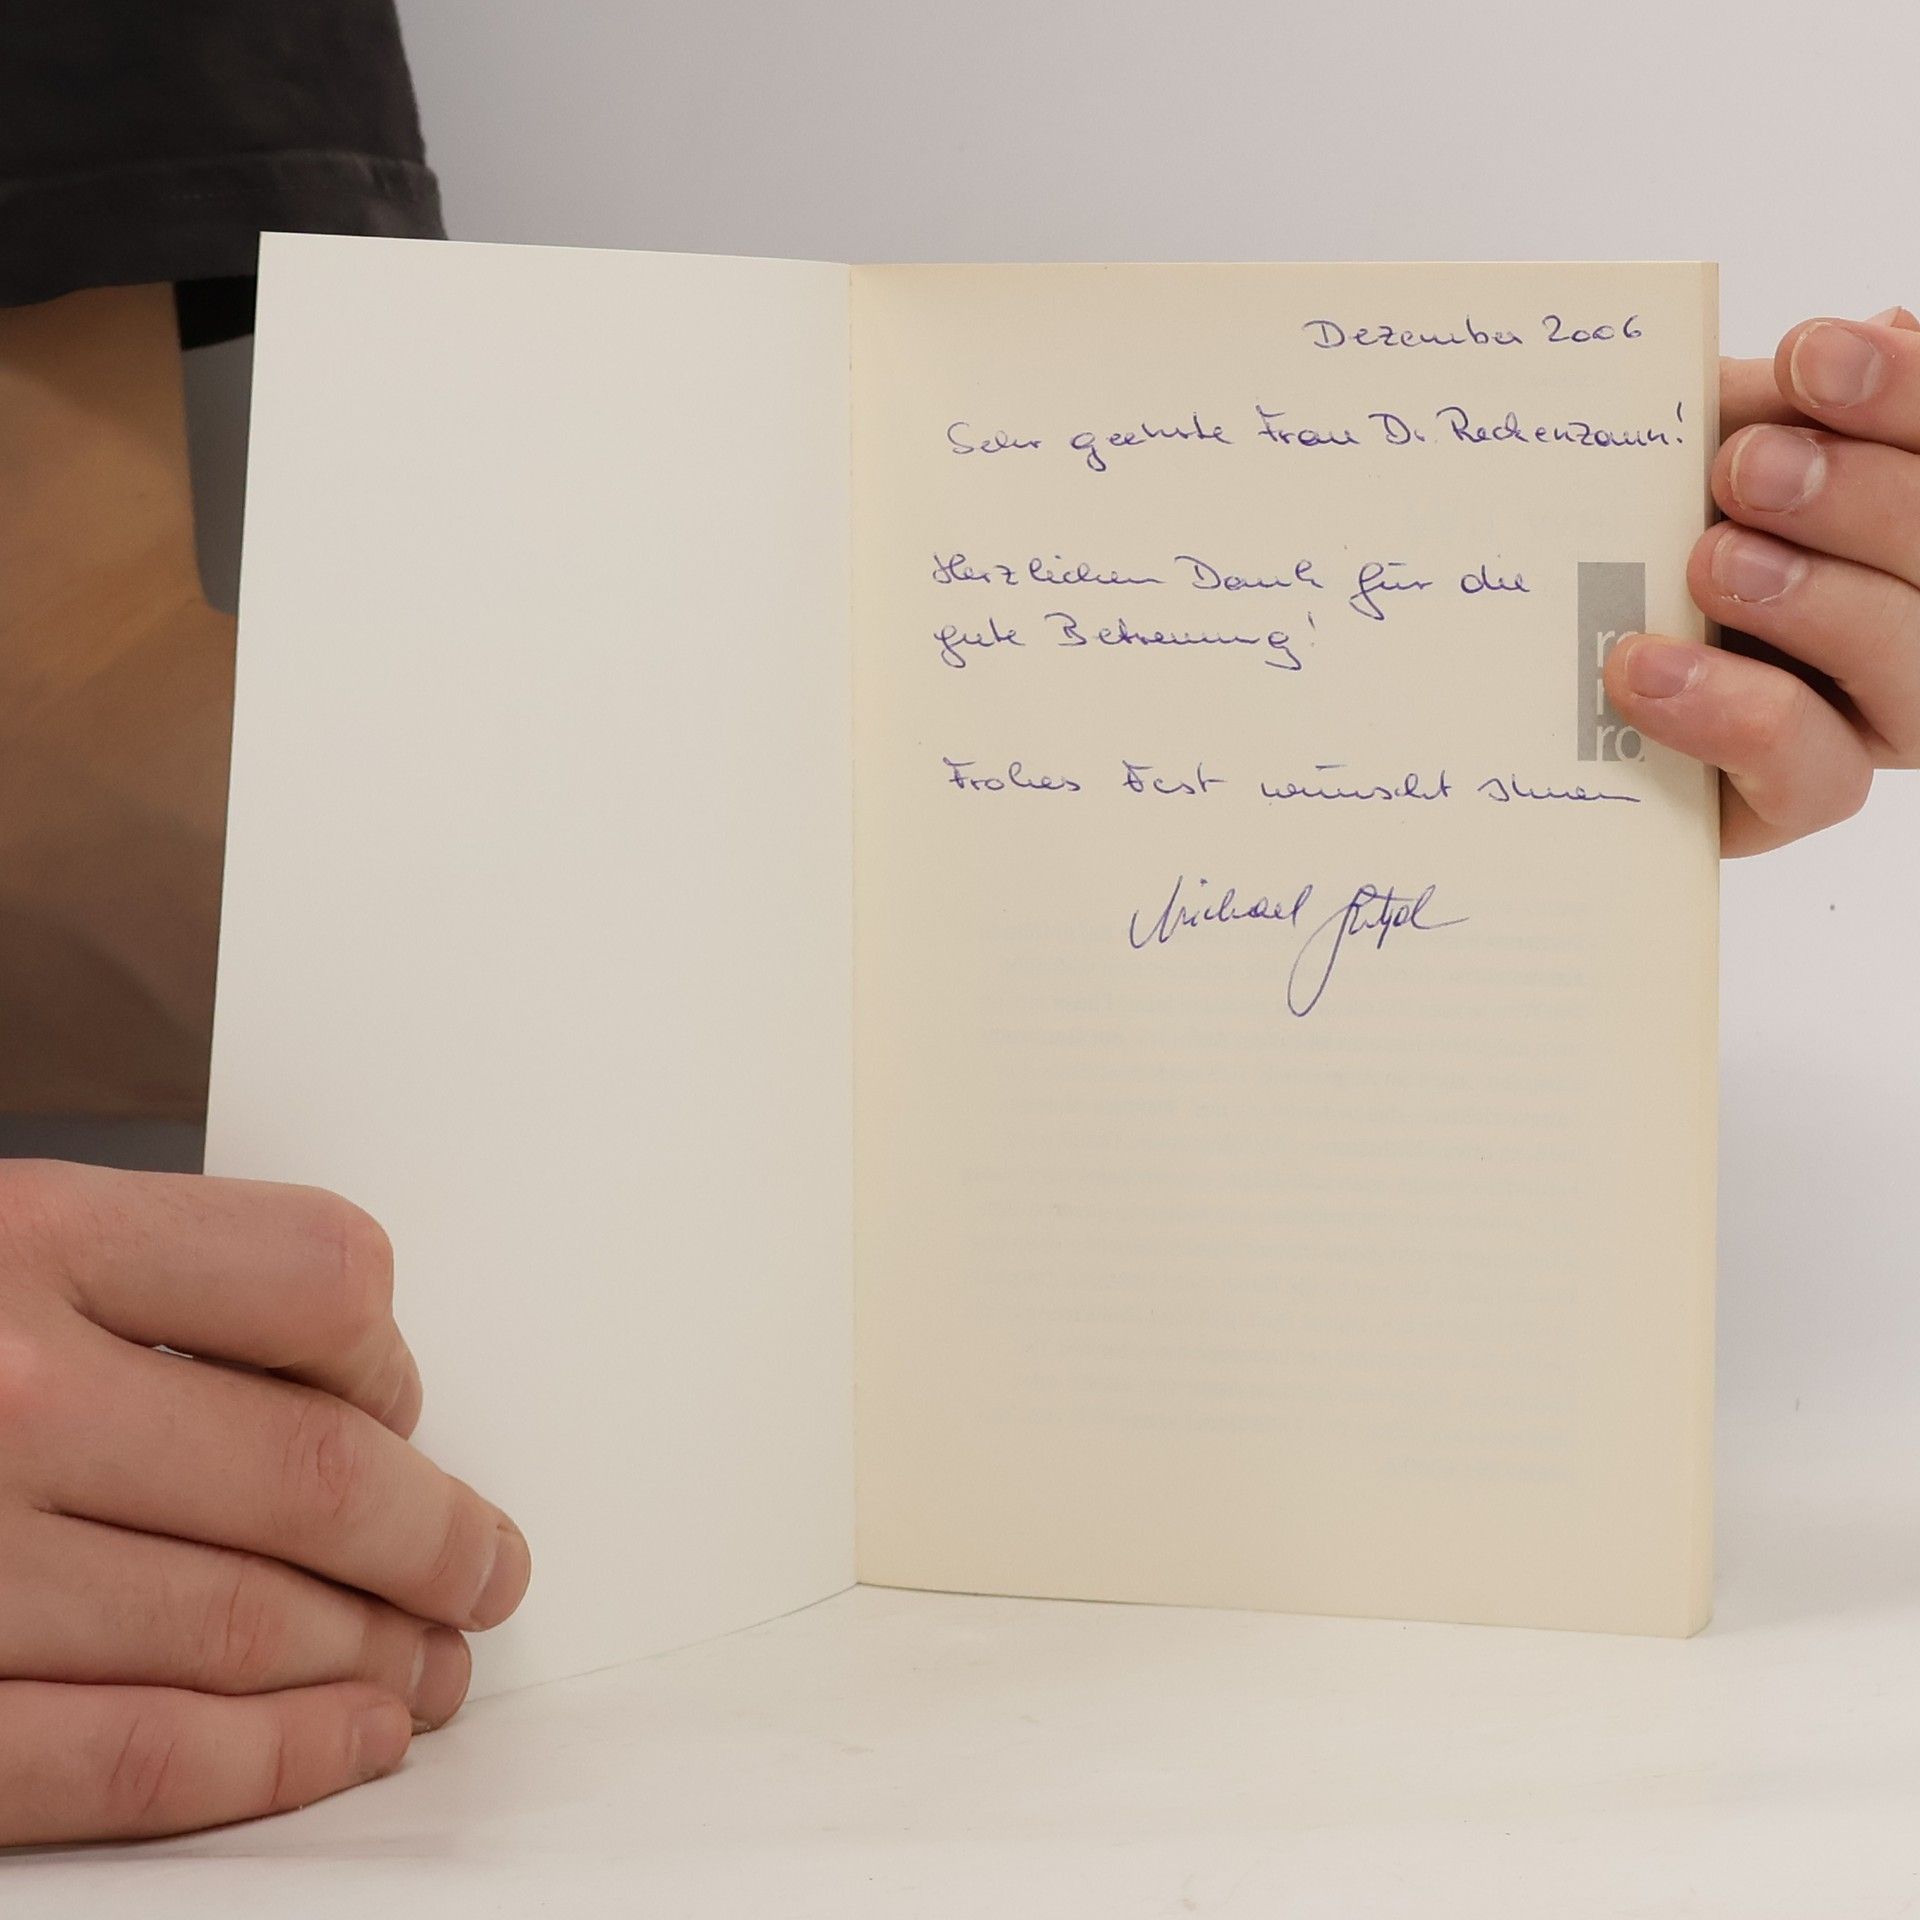 Dezember 2006
Sehr geehrte Frau Dr. Reckenzaun!
Herzlichen Dank für die
gute Betreuung!
ro
ro
Frohes Fest wünscht Ihnen
Michael